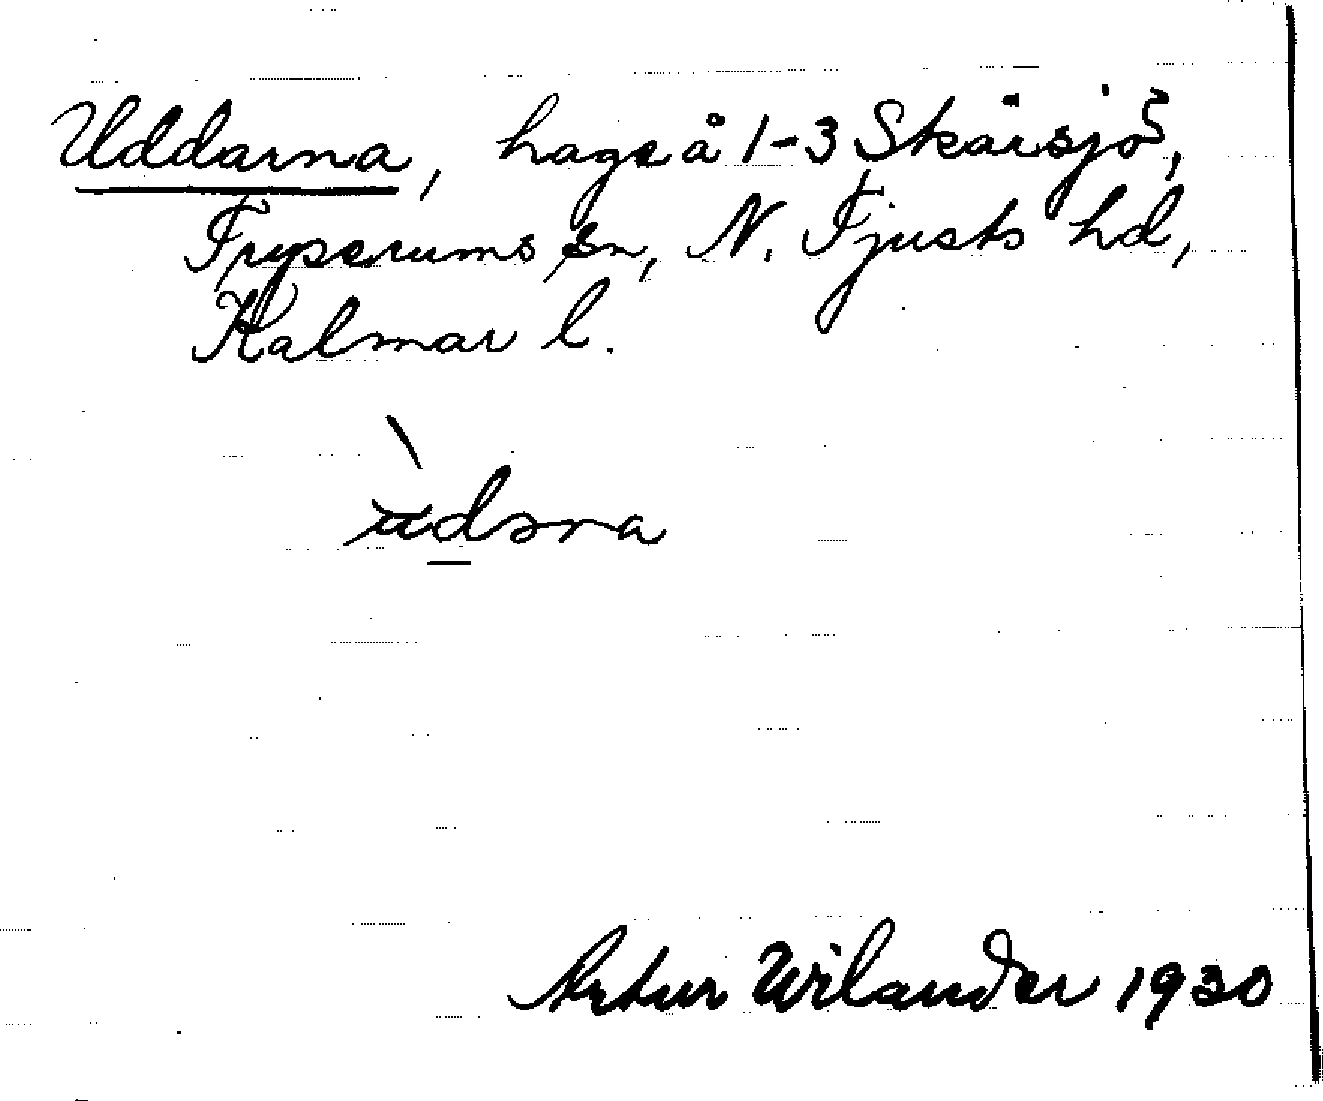 Uddarna, hage å 1-3 Skärsjö,
Tryserums sn, N. Tjusts hd,
Kalmar l.
Artur Wilander 1930